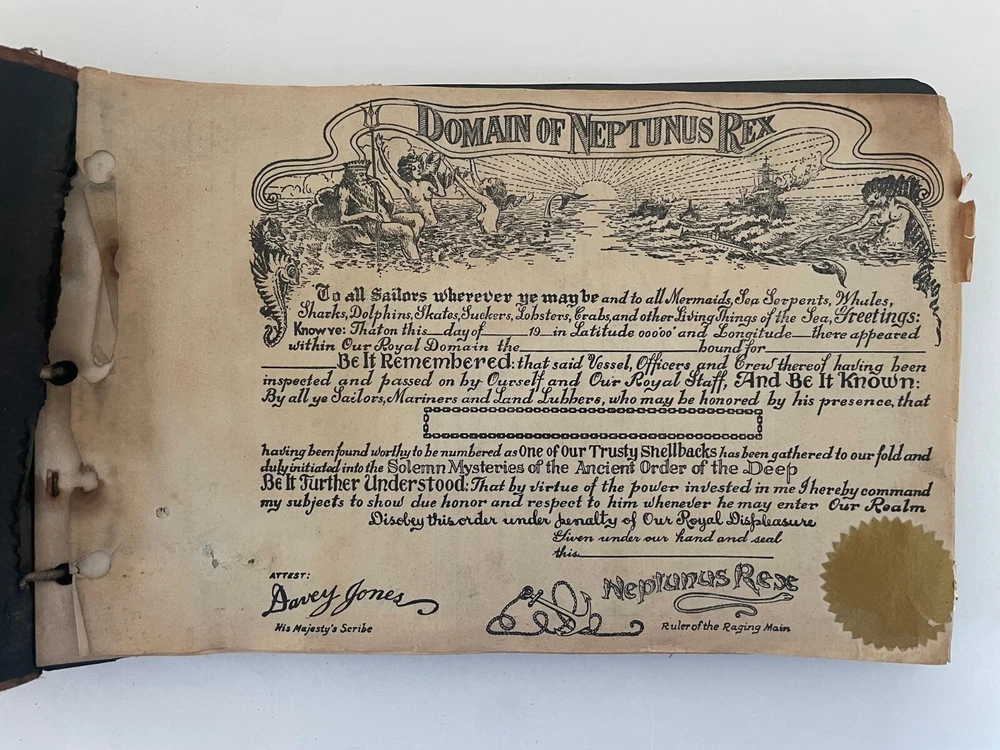 DOMAIN OF NEPTUNUS REX
To all Sailors wherever ye may be and to all Mermaids, Sea Serpents, Whales,
Sharks, Dolphins, Skates, Suckers, Lobsters, Crabs, and other Living Things of the Sea, Greetings:
Know ye: That on this___day of______19__in Latitude 00000' and Longitude___there appeared
within Our Royal Domain the__________bound for__________
__________Be It Remembered: that said Vessel, Officers and Crew thereof having been
inspected and passed on by Ourself and Our Royal Staff, And Be It Known:
By all ye Sailors, Mariners and Land Lubbers, who may be honored by his presence, that
having been found worthy to be numbered as One of our Trusty Shellbacks has been gathered to our fold and
duly initiated into the Solemn Mysteries of the Ancient Order of the Deep
Be It Further Understood: That by virtue of the power invested in me I hereby command
my subjects to show due honor and respect to him whenever he may enter Our Realm
Disobey this order under penalty of Our Royal Displeasure
Given under our hand and seal
this__________
ATTEST:
Davey Jones
His Majesty's Scribe
Neptunus Rex
Ruler of the Raging Main